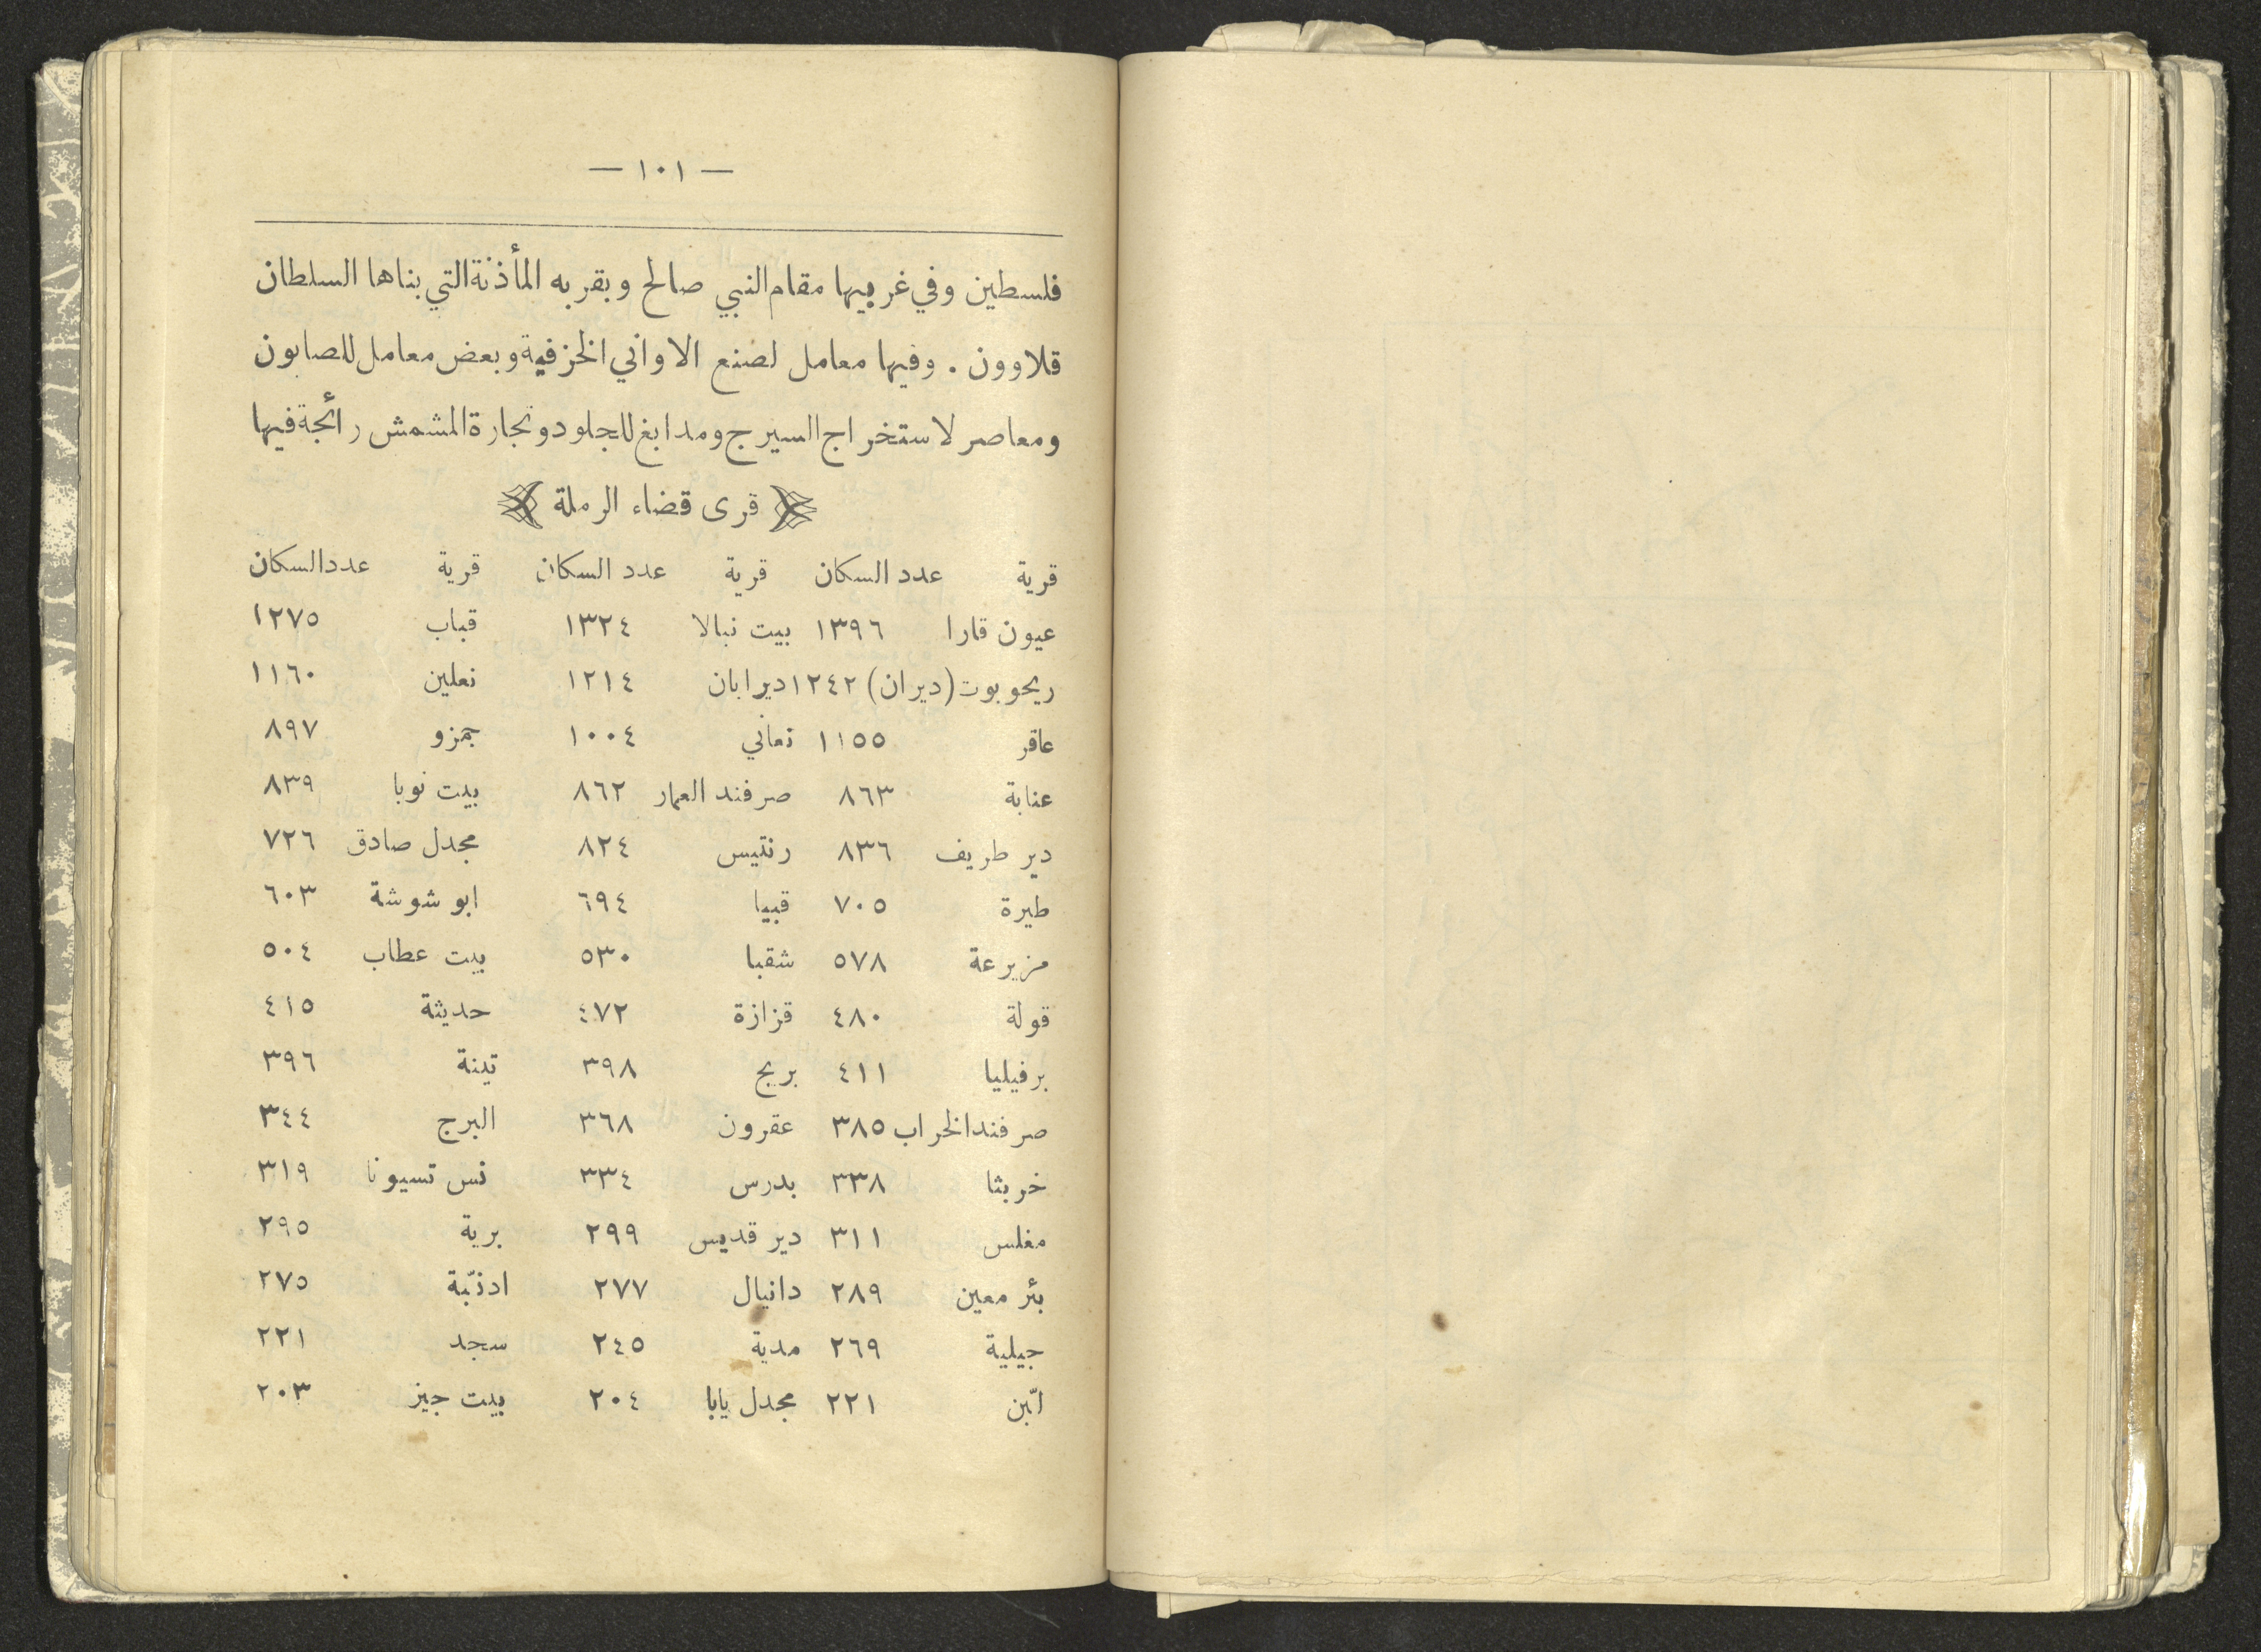 — ١٠١ —
فلسطين وفي غربيها مقام النبي صالح وبقربه المأذنة التي بناها السلطان
قلاوون . وفيها معامل لصنع الاواني الخزفية وبعض معامل للصابون
ومعاصر لاستخراج السيرج ومدابغ للجلود وتجارة المشمش رائجة فيها
قرى قضاء الرملة
قرية عدد السكان قرية عدد السكان قرية عدد السكان
عيون قارا ١٣٩٦ بيت نبالا ١٣٢٤ قباب ١٢٧٥
ريحوبوت (ديران) ١٢٤٢ دير ابان ١٢١٤ نعلين ١١٦٠
عاقر ١١٥٥ نعاني ١٠٠٤ جمزو ٨٩٧
عنابة ٨٦٣ صرفند العمار ٨٦٢ بيت نوبا ٨٣٩
دير طريف ٨٣٦ رنتيس ٨٢٤ مجدل صادق ٧٢٦
طيرة ٧٠٥ قبيا ٦٩٤ ابو شوشة ٦٠٣
مزيرعة ٥٧٨ شقبا ٥٣٠ بيت عطاب ٥٠٤
قولة ٤٨٠ قزازة ٤٧٢ حديثة ٤١٥
برفيليا ٤١١ بريج ٣٩٨ تينة ٣٩٦
صرفند الخراب ٣٨٥ عقرون ٣٦٨ البرج ٣٤٤
خربثا ٣٣٨ بدرس ٣٣٤ نس تسيونا ٣١٩
مغلس ٣١١ دير قديس ٢٩٩ برية ٢٩٥
بئر معين ٢٨٩ دانيال ٢٧٧ ادنبّة ٢٧٥
جيلية ٢٦٩ مدية ٢٤٥ سجد ٢٢١
لبّن ٢٢١ مجدل يابا ٢٠٤ بيت جيز ٢٠٣